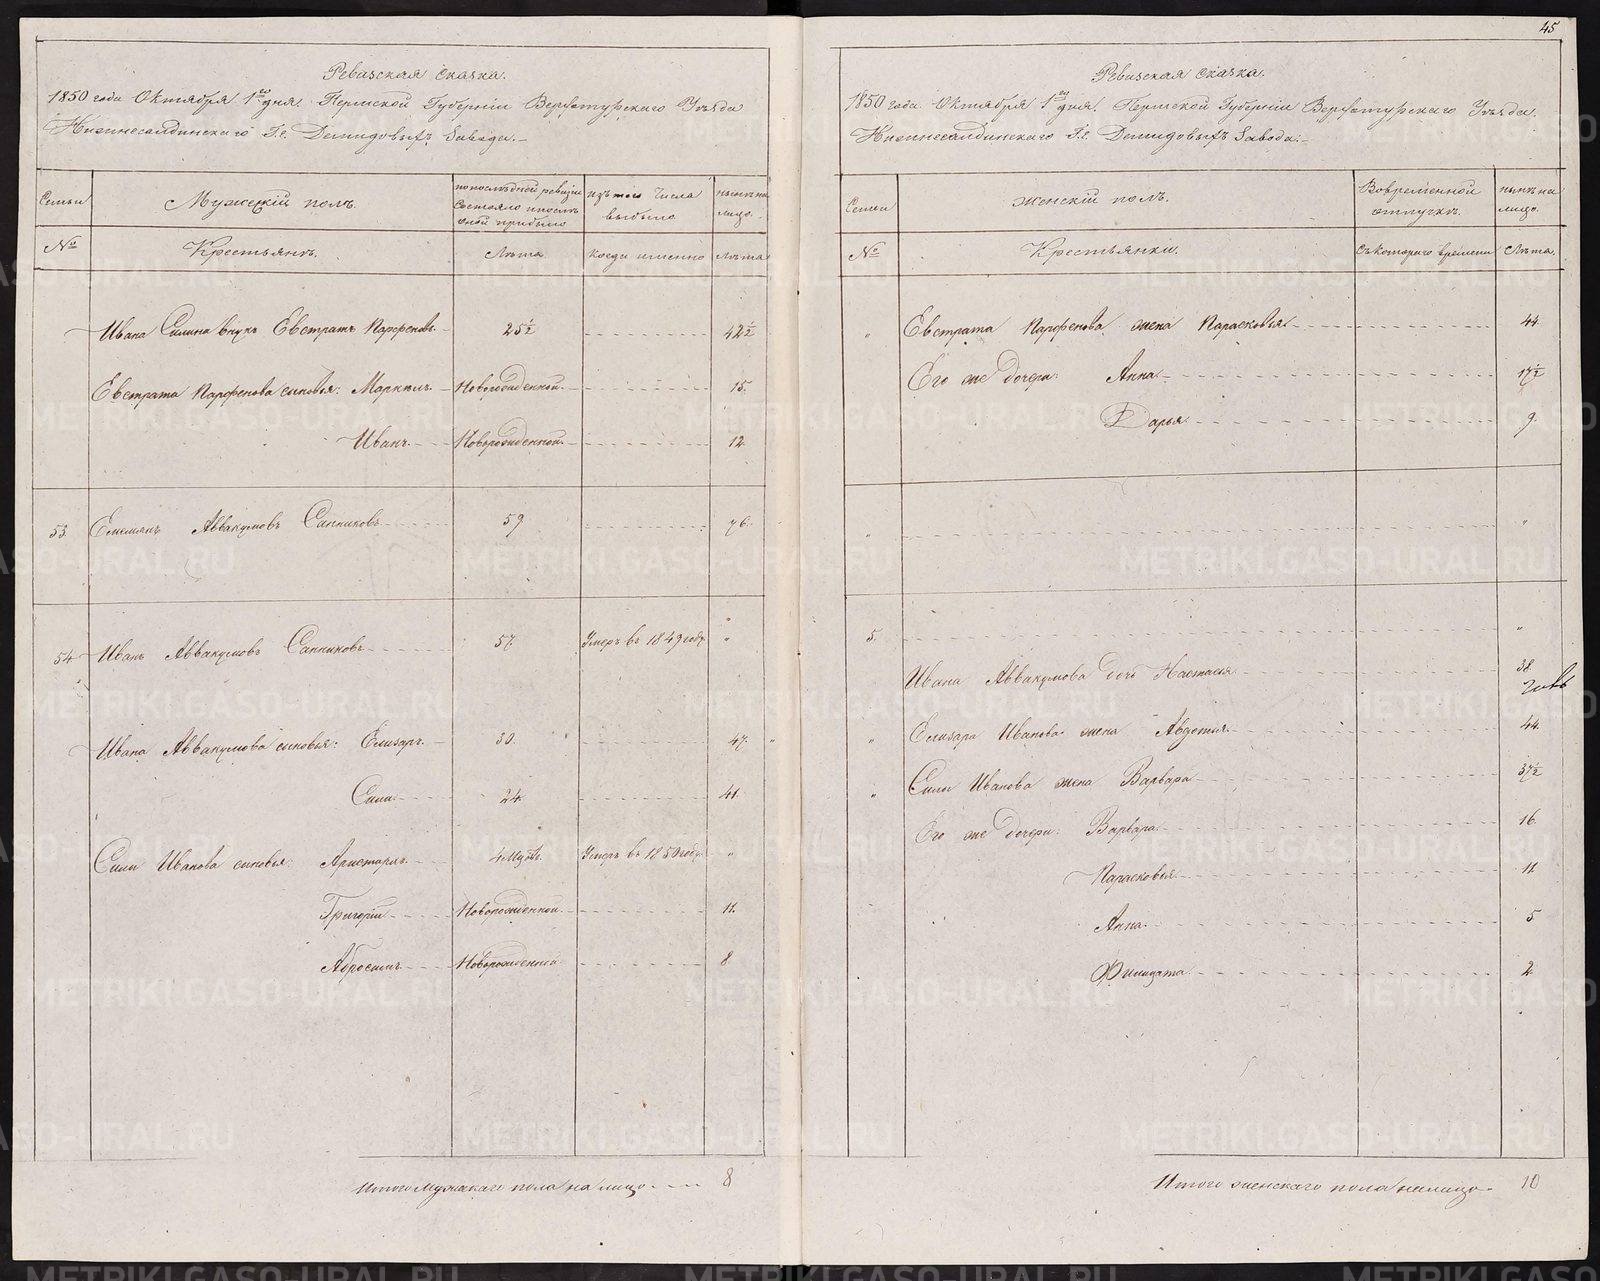 45
Ревизская сказка.
1850 года Октября 1го дня. Пермской Губерніи Верхотурскаго Уѣзда
Нижнесалдинскаго Г.г. Демидовыхъ Завода.
Семьи
Мужескій полъ.
по послѣдней ревизіи состояло и послѣ оной прибыло
изъ того числа выбыло
нынѣ на лицо.
№
Крестьянъ.
Лѣта
когда именно
Лѣта
Ивана Силина внукъ Евстратъ Парфеновъ. 25½ 42½
Евстрата Парфенова сыновья: Маркелъ. Новорожденной. 15.
Иванъ. Новорожденной. 12.
53. Емельянъ Аввакумовъ Санниковъ 59 76.
54 Иванъ Аввакумовъ Санниковъ 57. Умеръ въ 1849 году "
Ивана Аввакумова сыновья: Елизаръ. 30. 47.
Сила 24. 41.
Силы Иванова сыновья: Аристархъ. 4 Умеръ въ 1850 году "
Григорій Новорожденной. 11.
Абросимъ. Новорожденной 8
Итого мужскаго пола на лицо 8
Ревизская сказка.
1850 года Октября 1го дня. Пермской Губерніи Верхотурскаго Уѣзда.
Нижнесалдинскаго Г.г. Демидовыхъ Завода.
Семьи
Женскій полъ.
Во временной отлучкѣ.
нынѣ на лицо.
№
Крестьянки.
Съ котораго времени
Лѣта.
" Евстрата Парфенова жена Парасковья 44.
Его же дочери: Анна 17½
Дарья 9.
" "
5. "
Ивана Аввакумова дочь Настасья 38.
" Елизара Иванова жена Авдотья 44.
" Силы Иванова жена Варвара 37½
Его же дочери: Варвара 16.
Парасковья 11
Анна. 5
Филицата 2
Итого женскаго пола налицо 10
METRIKI.GASO-URAL.RU